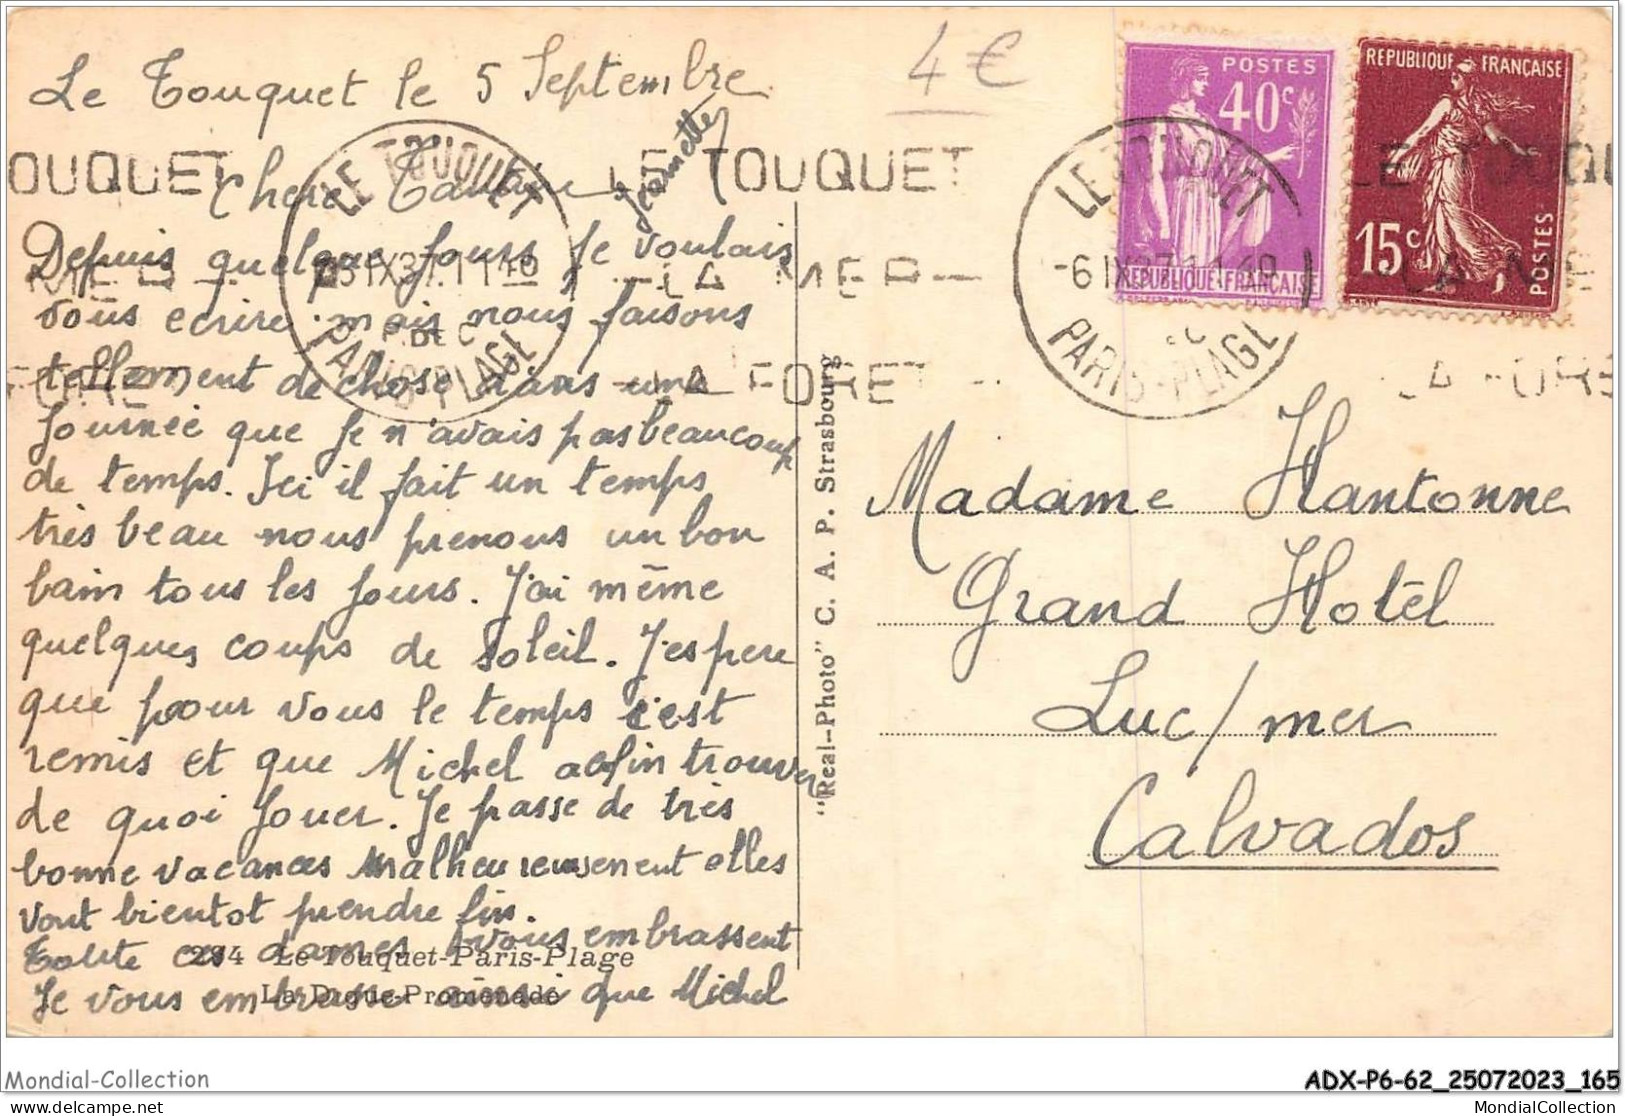 Le Touquet le 5 Septembre
4 €
Chere Tantine
Jeannette
Depuis quelque jours je voulais
vous ecrire mais nous faisons
tellement de chose dans une
Journée que je n'avais pas beaucoup
de temps. Ici il fait un temps
très beau nous prenons un bon
bain tous les jours. J'ai même
quelques coups de soleil. J'espere
que pour vous le temps c'est
remis et que Michel a enfin trouver
de quoi jouer. Je passe de très
bonne vacances malheureusement elles
vont bientot prendre fin.
Toute ces dames vous embrassent
Je vous embrasse ainsi que Michel
284 Le Touquet-Paris-Plage
La Digue-Promenade
"Real-Photo" C. A. P. Strasbourg
POSTES
40c
REPUBLIQUE FRANÇAISE
REPUBLIQUE FRANÇAISE
15c
POSTES
OUQUET
LE TOUQUET
LE TOUQU
LA MER
LA FORET
LE TOUQUET
PARIS-PLAGE
LE TOUQUET
-6 IX 37
PARIS-PLAGE
Madame Hantonne
Grand Hotêl
Luc/mer
Calvados
Mondial-Collection
ADX-P6-62_25072023_165
mondial-collection
MondialCollection